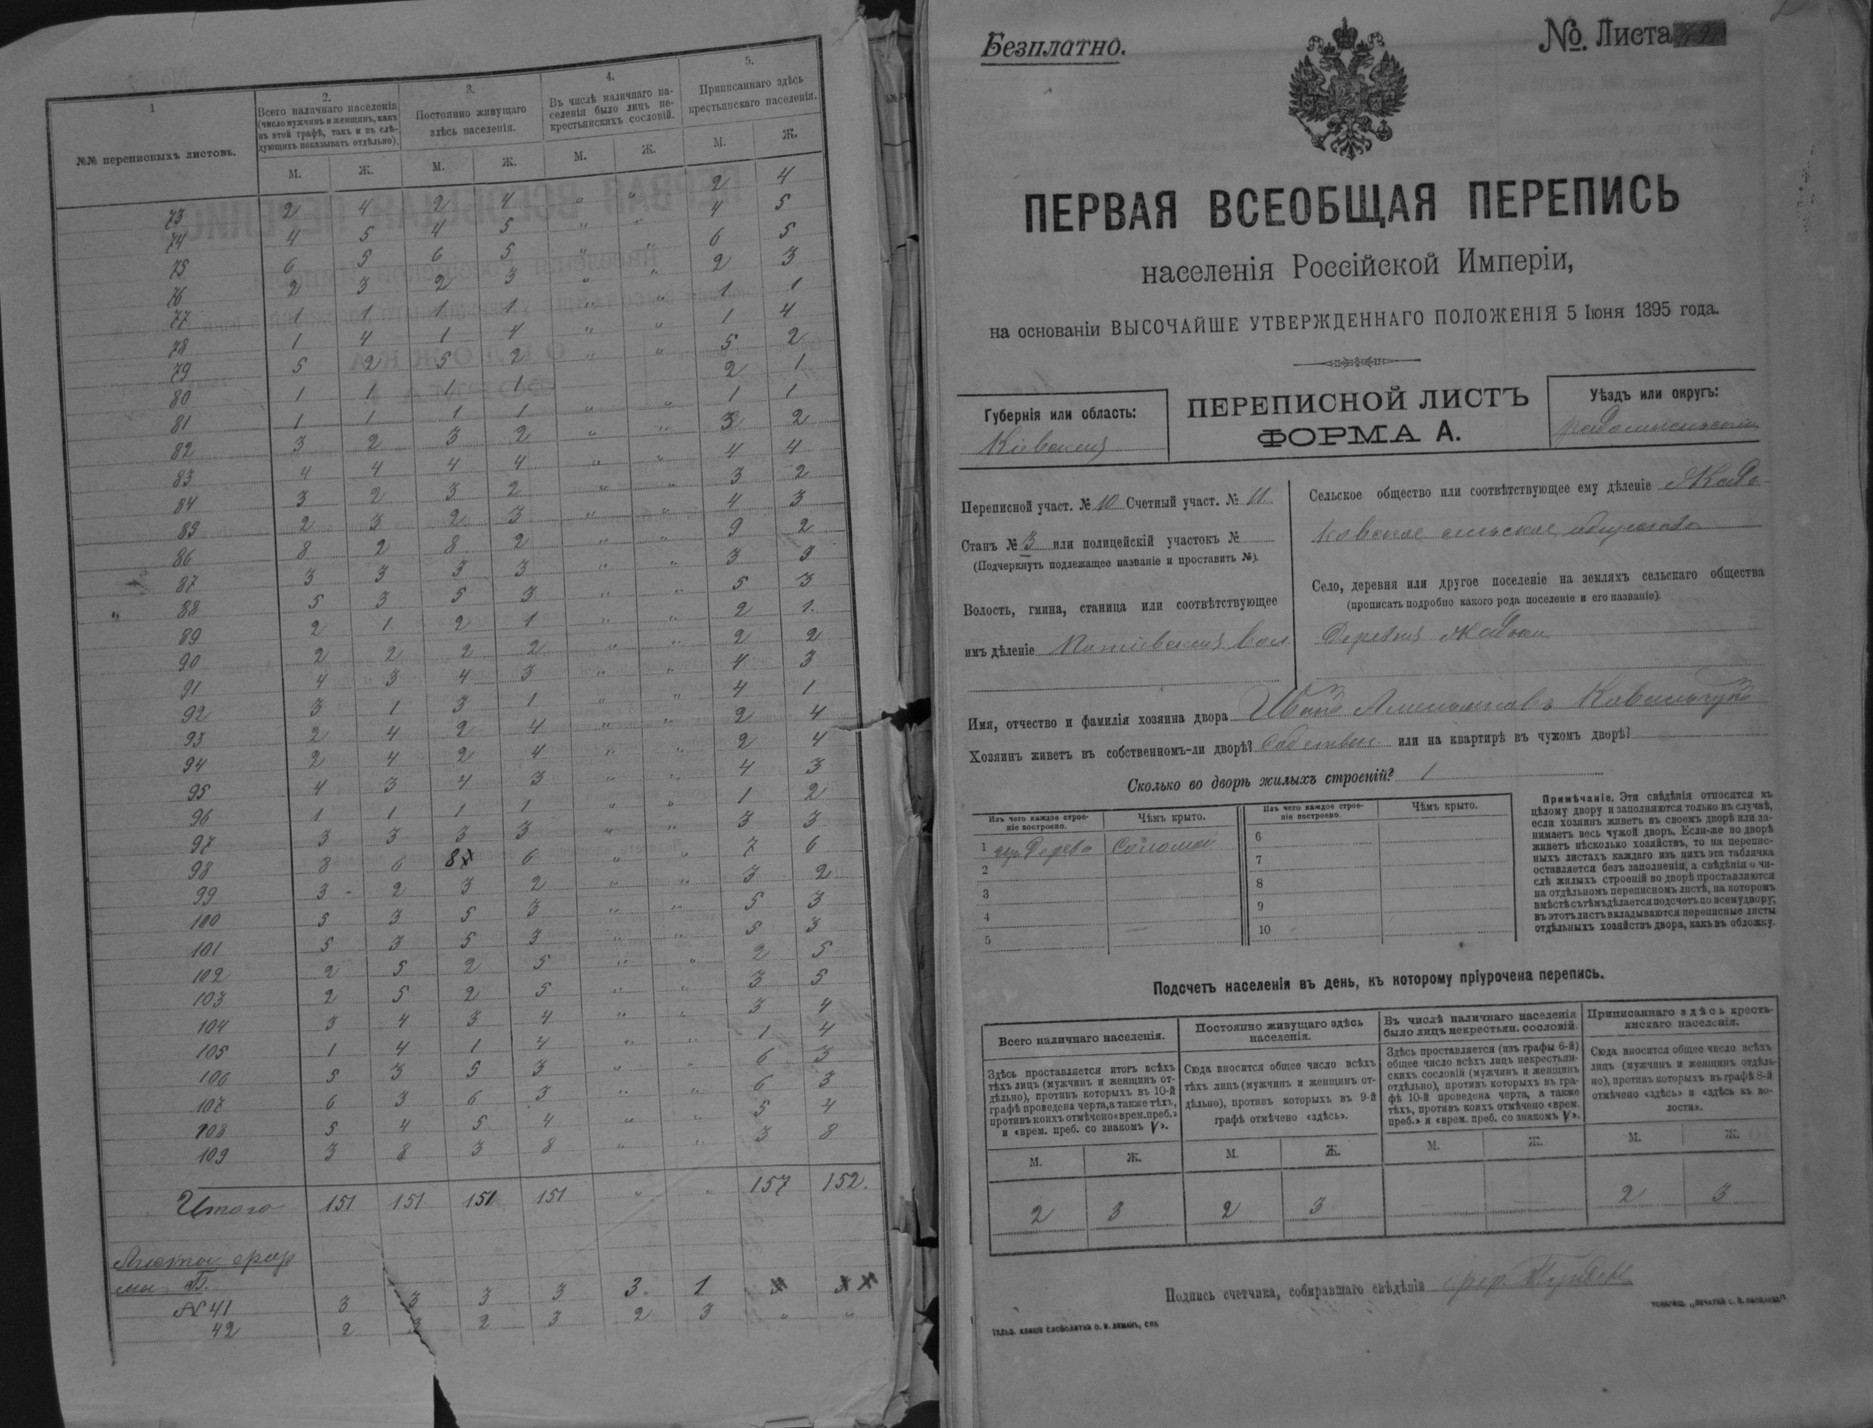 1
№№ переписныхъ листовъ.
2.
Всего наличнаго населенія
(число мужчинъ и женщинъ, какъ
въ этой графѣ, такъ и въ слѣ-
дующихъ показывать отдѣльно).
3.
Постоянно живущаго
здѣсь населенія.
4.
Въ числѣ наличнаго на-
селенія было лицъ не-
крестьянскихъ сословій.
5.
Приписаннаго здѣсь
крестьянскаго населенія.
М. Ж. М. Ж. М. Ж. М. Ж.
73 2 4 2 4 " " 2 4
74 4 5 4 5 " " 4 5
75 6 5 6 5 " " 6 5
76 2 3 2 3 " " 2 3
77 1 1 1 1 " " 1 1
78 1 4 1 4 " " 1 4
79 5 2 5 2 " " 5 2
80 1 1 1 1 2 1
81 1 1 1 1 " " 1 1
82 3 2 3 2 " " 3 2
83 4 4 4 4 " " 4 4
84 3 2 3 2 " " 3 2
85 2 3 2 3 " " 4 3
86 8 2 8 2 " " 9 2
87 3 3 3 3 " " 3 3
88 5 3 5 3 " " 5 3
89 2 1 2 1 " " 2 1
90 2 2 2 2 " " 2 2
91 4 3 4 3 " " 4 3
92 3 1 3 1 " " 4 1
93 2 4 2 4 " " 2 4
94 2 4 2 4 " " 2 4
95 4 3 4 3 " " 4 3
96 1 1 1 1 " " 1 2
97 3 3 3 3 " " 3 3
98 8 6 8 6 " " 7 6
99 3 - 2 3 2 " " 3 2
100 5 3 5 3 " " 5 3
101 5 3 5 3 " " 5 3
102 2 5 2 5 " " 2 5
103 2 5 2 5 " " 3 5
104 3 4 3 4 " " 3 4
105 1 4 1 4 " " 1 4
106 5 3 5 3 " " 6 3
107 6 3 6 3 " " 6 3
108 5 4 5 4 " " 5 4
109 3 8 3 8 " " 3 8
Итого 151 151 151 151 " " 157 152.
Листы фор
мы Б.
№ 41 3 3 3 3 3. 1
42 2 3 2 3 2 3 " "
Безплатно.
№. Листа
ПЕРВАЯ ВСЕОБЩАЯ ПЕРЕПИСЬ
населенія Россійской Имперіи,
на основаніи ВЫСОЧАЙШЕ УТВЕРЖДЕННАГО ПОЛОЖЕНІЯ 5 Іюня 1895 года.
Губернія или область:
Кіевская
ПЕРЕПИСНОЙ ЛИСТЪ
ФОРМА А.
Уѣздъ или округъ:
Радомысльскій
Переписной участ. № 10 Счетный участ. № 11
Станъ № 3 или полицейскій участокъ №
(Подчеркнуть подлежащее названіе и проставить №).
Волость, гмина, станица или соотвѣтствующее
имъ дѣленіе Потіевская вол
Сельское общество или соотвѣтствующее ему дѣленіе Жадь-
ковское сельское общество
Село, деревня или другое поселеніе на земляхъ сельскаго общества
(прописать подробно какого рода поселеніе и его названіе)
Деревня Жадьки
Имя, отчество и фамилія хозяина двора Иванъ Ковальчукъ
Хозяинъ живетъ въ собственномъ-ли дворѣ? Собствен. или на квартирѣ въ чужомъ дворѣ?
Сколько во дворѣ жилыхъ строеній? 1
Изъ чего каждое строе-
ніе построено.
Чѣмъ крыто.
Изъ чего каждое строе-
ніе построено.
Чѣмъ крыто.
1 Дерева Соломой 6
2 7
3 8
4 9
5 10
Примѣчаніе. Эти свѣдѣнія относятся къ
цѣлому двору и заполняются только въ случаѣ,
если хозяинъ живетъ въ своемъ дворѣ или за-
нимаетъ весь чужой дворъ. Если-же во дворѣ
живетъ нѣсколько хозяйствъ, то на перепис-
ныхъ листахъ каждаго изъ нихъ эта табличка
оставляется безъ заполненія, а свѣдѣнія о чи-
слѣ жилыхъ строеній во дворѣ проставляются
на отдѣльномъ переписномъ листѣ, на которомъ
вмѣстѣ съ тѣмъ дѣлается подсчетъ по всему двору;
въ этотъ листъ вкладываются переписные листы
отдѣльныхъ хозяйствъ двора, какъ въ обложку.
Подсчетъ населенія въ день, къ которому пріурочена перепись.
Всего наличнаго населенія.
Здѣсь проставляется итогъ всѣхъ
тѣхъ лицъ (мужчинъ и женщинъ от-
дѣльно), противъ которыхъ въ 10-й
графѣ проведена черта, а также тѣхъ,
противъ коихъ отмѣчено «врем. преб.»
и «врем. преб. со знакомъ V».
Постоянно живущаго здѣсь
населенія.
Сюда вносится общее число всѣхъ
тѣхъ лицъ (мужчинъ и женщинъ от-
дѣльно), противъ которыхъ въ 9-й
графѣ отмѣчено «здѣсь».
Въ числѣ наличнаго населенія
было лицъ некрестьян. сословій.
Здѣсь проставляется (изъ графы 6-й)
общее число всѣхъ лицъ некрестьян-
скихъ сословій (мужчинъ и женщинъ
отдѣльно), противъ которыхъ въ гра-
фѣ 10-й проведена черта, а также
тѣхъ, противъ коихъ отмѣчено «врем.
преб.» и «врем. преб. со знакомъ V».
Приписаннаго здѣсь кресть-
янскаго населенія.
Сюда вносится общее число всѣхъ
лицъ (мужчинъ и женщинъ отдѣль-
но), противъ которыхъ въ графѣ 8-й
отмѣчено «здѣсь» и «здѣсь въ во-
лости».
М. Ж. М. Ж. М. Ж. М. Ж.
2 3 2 3 2 3
Подпись счетчика, собиравшаго свѣдѣнія